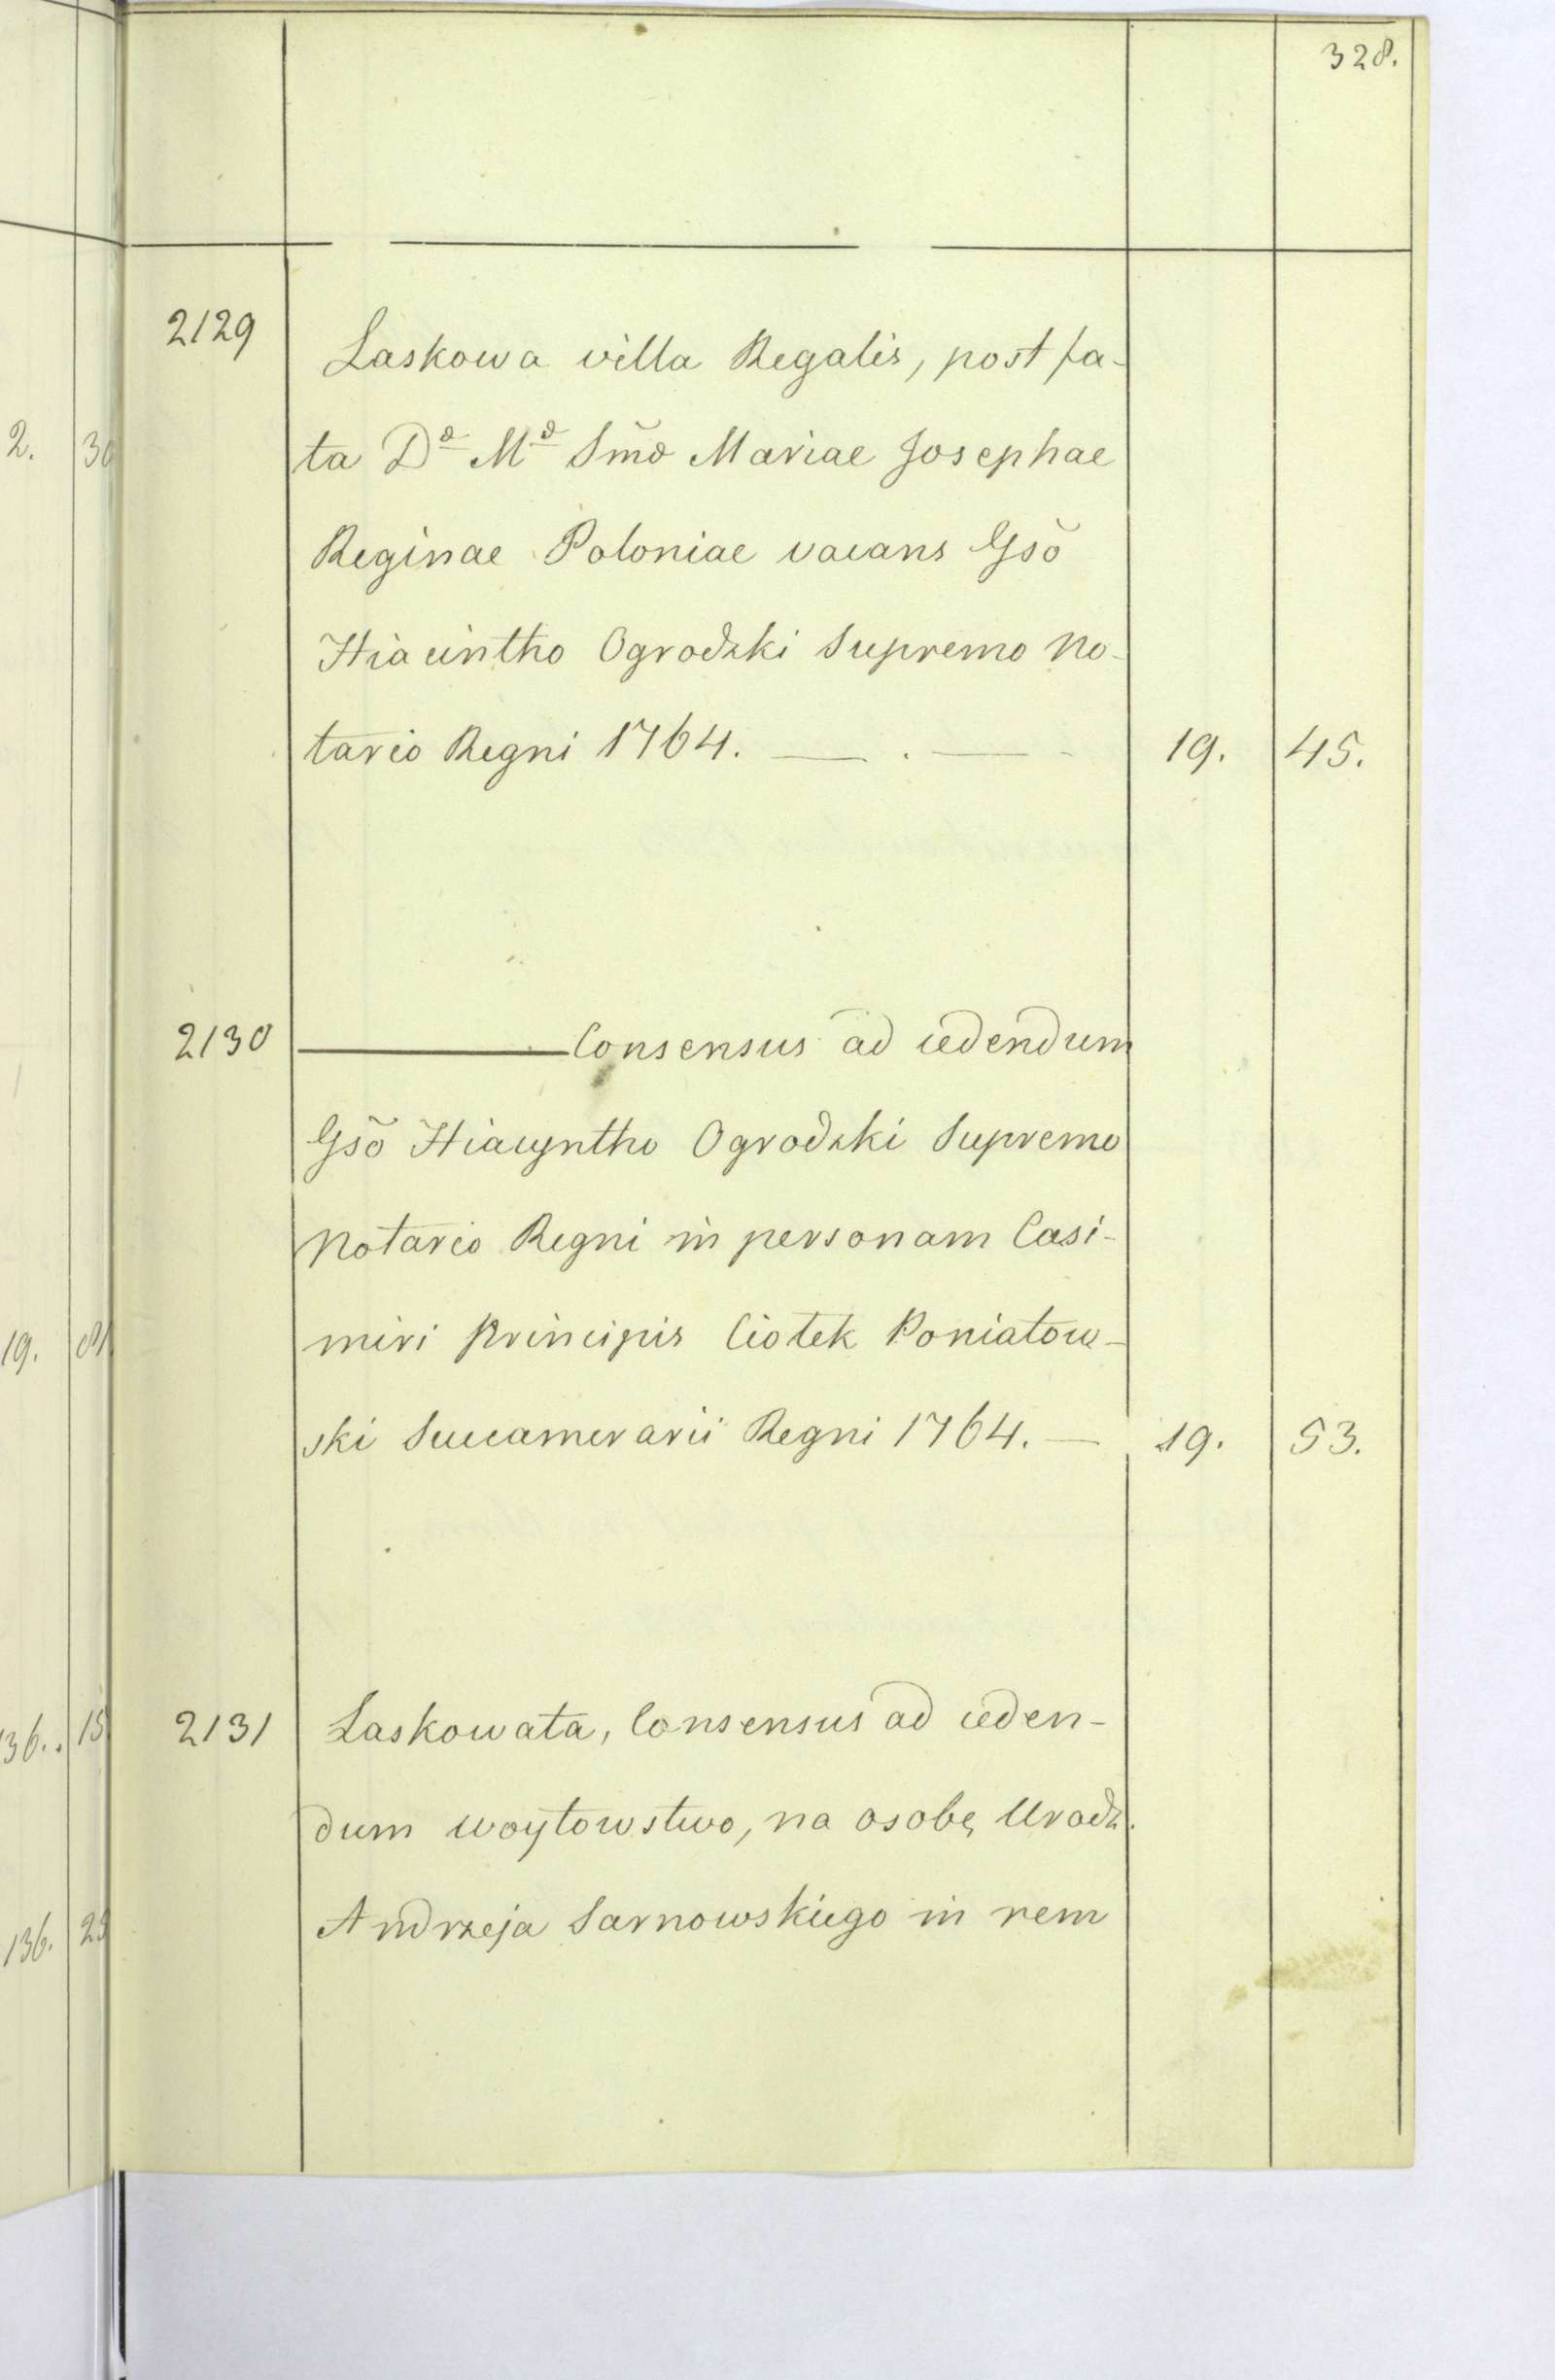 328.
2129 Laskowa villa Regalis, post fa-
ta Dae Mae Smae Mariae Josephae
Reginae Poloniae vacans Gsõ
Hiacintho Ogrodzki Supremo No-
tario Regni 1764. — . — - 19. 45.
2130 ——— Consensus ad cedendum
Gsõ Hiacyntho Ogrodzki Supremo
Notario Regni in personam Casi-
miri Principis Ciołek Poniatow-
ski Succamerarii Regni 1764. — 19. 53.
2131 Laskowata, Consensus ad ceden-
dum woytowstwo, na osobę Urodz.
Andrzeja Sarnowskiego in rem
2. 30
19.
136. 15
136.